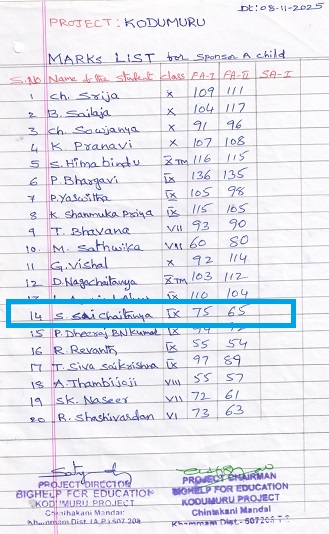 Dt: 08-11-2025
PROJECT: KODUMURU
MARKS LIST for Sponsor A child
S.No Name of the student class FA-I FA-II SA-I
1 Ch. Srija X 109 111
2 B. Sailaja X 104 117
3 Ch. Sowjanya X 91 96
4 K. Pranavi X 107 108
5 S. Himabindu X TM 116 115
6 P. Bhargavi IX 136 135
7 P. Yaswitha IX 105 98
8 K Shanmuka Priya IX 115 105
9 T. Bhavana VII 93 90
10. M. Sathwika VII 60 80
11 G. Vishal X 92 114
12 D. Nagachaitanya X TM 103 112
IX 110 104
14 S. Sai Chaitanya IX 75 65
15 P. Dheeraj IX
16 R. Revanth IX 55 54
17 T. Siva Saikrishna IX 97 89
18 A. Thambijoji VIII 55 57
19 SK. Naseer VII 72 61
20 R. Shashivardan VI 73 63
PROJECT DIRECTOR
BIGHELP FOR EDUCATION
KODUMURU PROJECT
Chinthakani Mandal
PROJECT CHAIRMAN
BIGHELP FOR EDUCATION
KODUMURU PROJECT
Chintakani Mandal
Khammam Dist.-